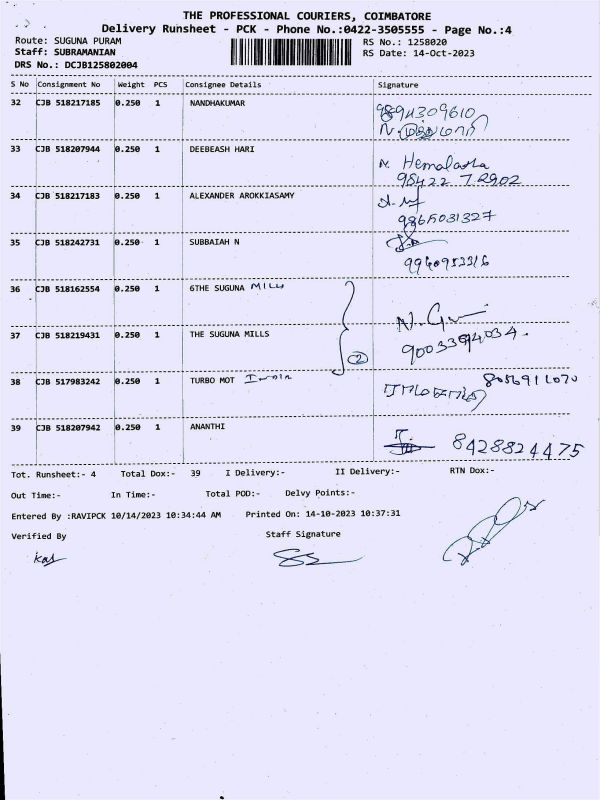 THE PROFESSIONAL COURIERS, COIMBATORE
Delivery Runsheet - PCK - Phone No.:0422-3505555 - Page No.:4
Route: SUGUNA PURAM RS No.: 1258020
Staff: SUBRAMANIAN RS Date: 14-Oct-2023
DRS No.: DCJB125802004
S No Consignment No Weight PCS Consignee Details Signature
32 CJB 518217185 0.250 1 NANDHAKUMAR 9894309610
33 CJB 518207944 0.250 1 DEEBEASH HARI N. Hemalatha
98422 72902
34 CJB 518217183 0.250 1 ALEXANDER AROKKIASAMY
9865031327
35 CJB 518242731 0.250 1 SUBBAIAH N
36 CJB 518162554 0.250 1 6THE SUGUNA MILLS
37 CJB 518219431 0.250 1 THE SUGUNA MILLS 2
38 CJB 517983242 0.250 1 TURBO MOT
39 CJB 518207942 0.250 1 ANANTHI 8428824475
Tot. Runsheet:- 4 Total Dox:- 39 I Delivery:- II Delivery:- RTN Dox:-
Out Time:- In Time:- Total POD:- Delvy Points:-
Entered By :RAVIPCK 10/14/2023 10:34:44 AM Printed On: 14-10-2023 10:37:31
Verified By Staff Signature